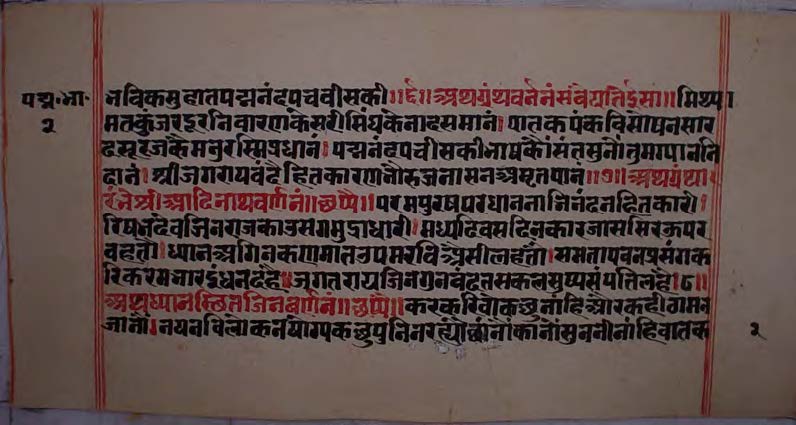 पद्म॰भा॰
२
भविकमुहातपद्मनंदपचवीसकी॥६॥अथग्रंथवर्ननंसवैयातेईसा॥मिथ्या
मतकुंजरदूरनिवारणकेसरीसिंघकेनादसमानं।पातकपंकविसोषनसार
दसूरजकेमनुरस्मिप्रधानं।पद्मनंदपचीसकीभाषकौंसंतसुनौंतुमग्यानति
दानं।श्रीजगरायवंदैहितकारणजोरुजनासनअमृतपानं॥७॥अथग्रंथा
रंनेश्रीआदिनाथवर्णनं॥छप्पै॥परमपुरषपरधाननाजिनंदनहितकारी।
रिषनदेवजिनराजकाउसगमुद्राधारी।मध्यदिवसदिनकारजाससिरऊपर
वहतौ।ध्यानअगिनकणमातउपमरविअसीलहतौ।समतापवनप्रसंगक
रिकरमजारइंधनदहै।जगतरायजिनगुनवंदतसकलसुष्यसंपतिलहै॥८॥
अथध्यानस्थितजिनवर्णनं॥छप्पै॥करकरिवोकछुनांहिओरकहीगमन
जानौ।नयनविलोकनयोग्यकछुपुनिनरह्यो
सुननीनांहिवातक
२